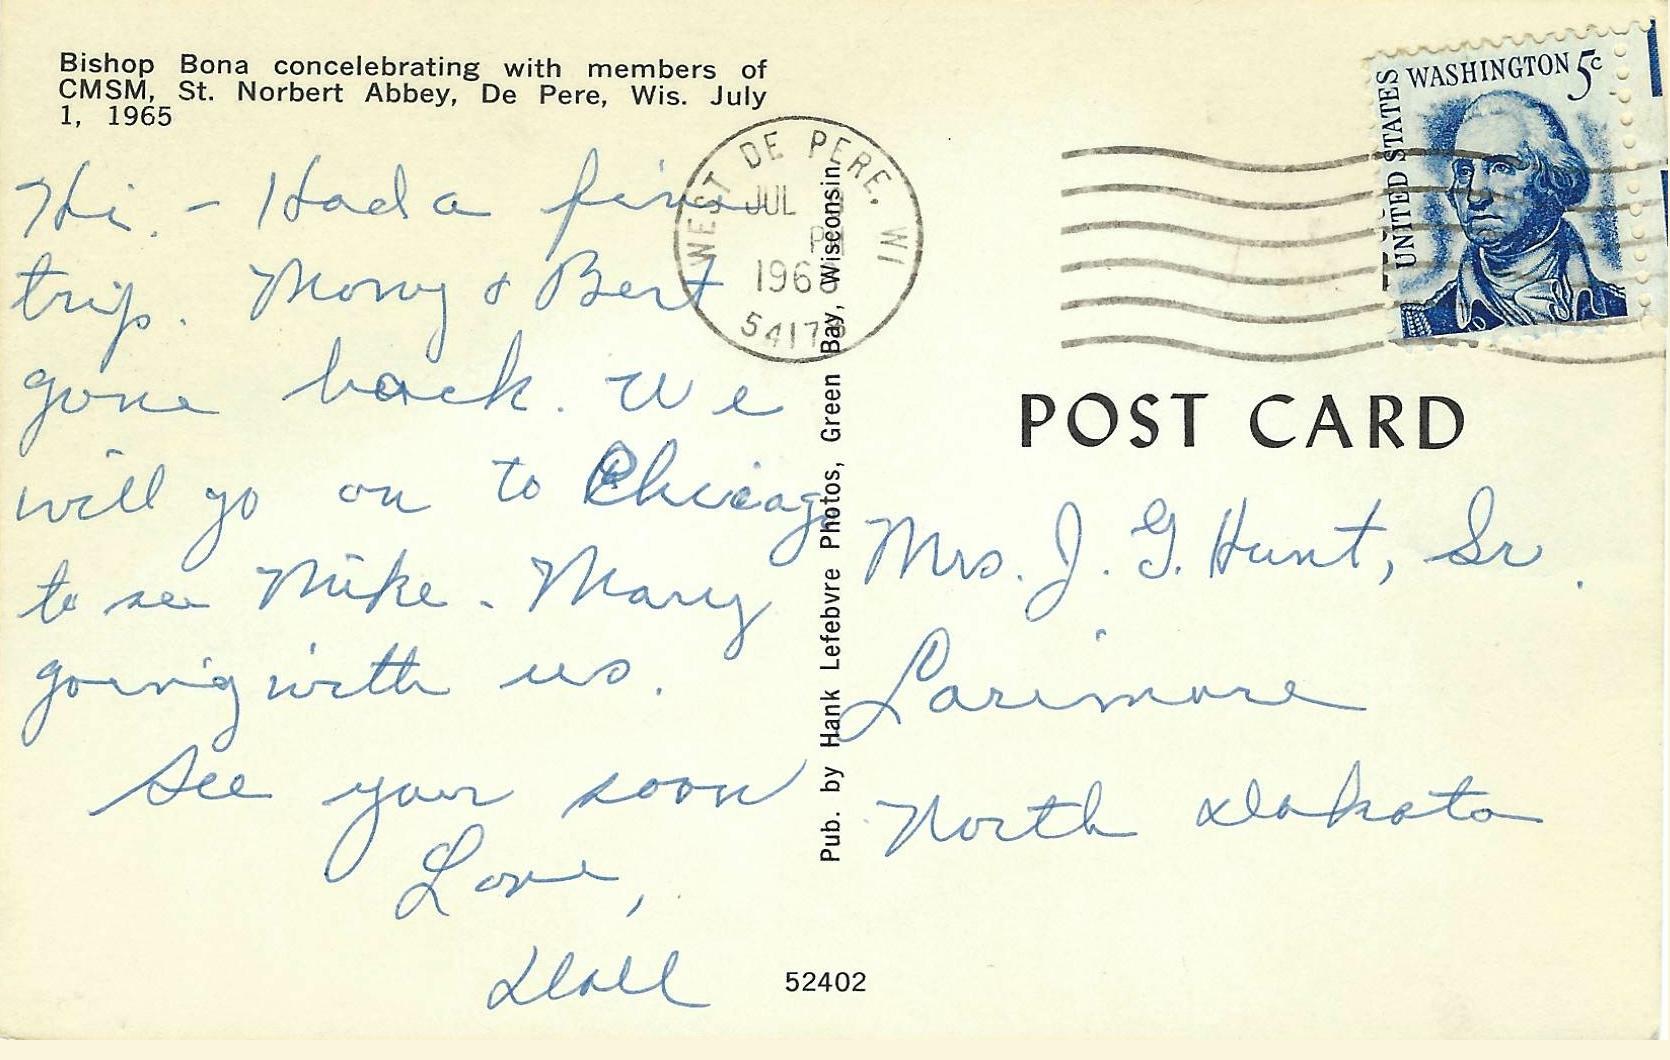 Bishop Bona concelebrating with members of
CMSM, St. Norbert Abbey, De Pere, Wis. July
1, 1965
Hi. - Had a fine
trip. Mony & Bert
gone back. We
will go on to Chicago
to see Mike. Mary
going with us.
See your soon
Love,
Doll
WEST DE PERE, WI
JUL
PM
196
5417
Pub. by Hank Lefebvre Photos, Green Bay, Wisconsin.
52402
UNITED STATES
WASHINGTON 5c
POST CARD
Mrs. J. G. Hunt, Sr.
Larimore
North Dakota